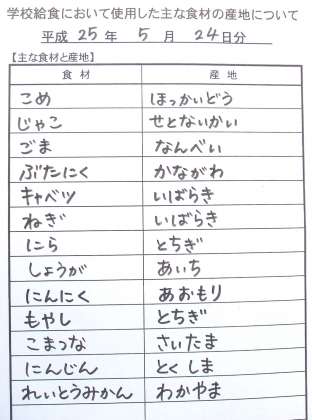 学校給食において使用した主な食材の産地について
平成 25 年 5 月 24 日分
【主な食材と産地】
食 材 産 地
こめ ほっかいどう
じゃこ せとないかい
ごま なんべい
ぶたにく かながわ
キャベツ いばらき
ねぎ いばらき
にら とちぎ
しょうが あいち
にんにく あおもり
もやし とちぎ
こまつな さいたま
にんじん とくしま
れいとうみかん わかやま